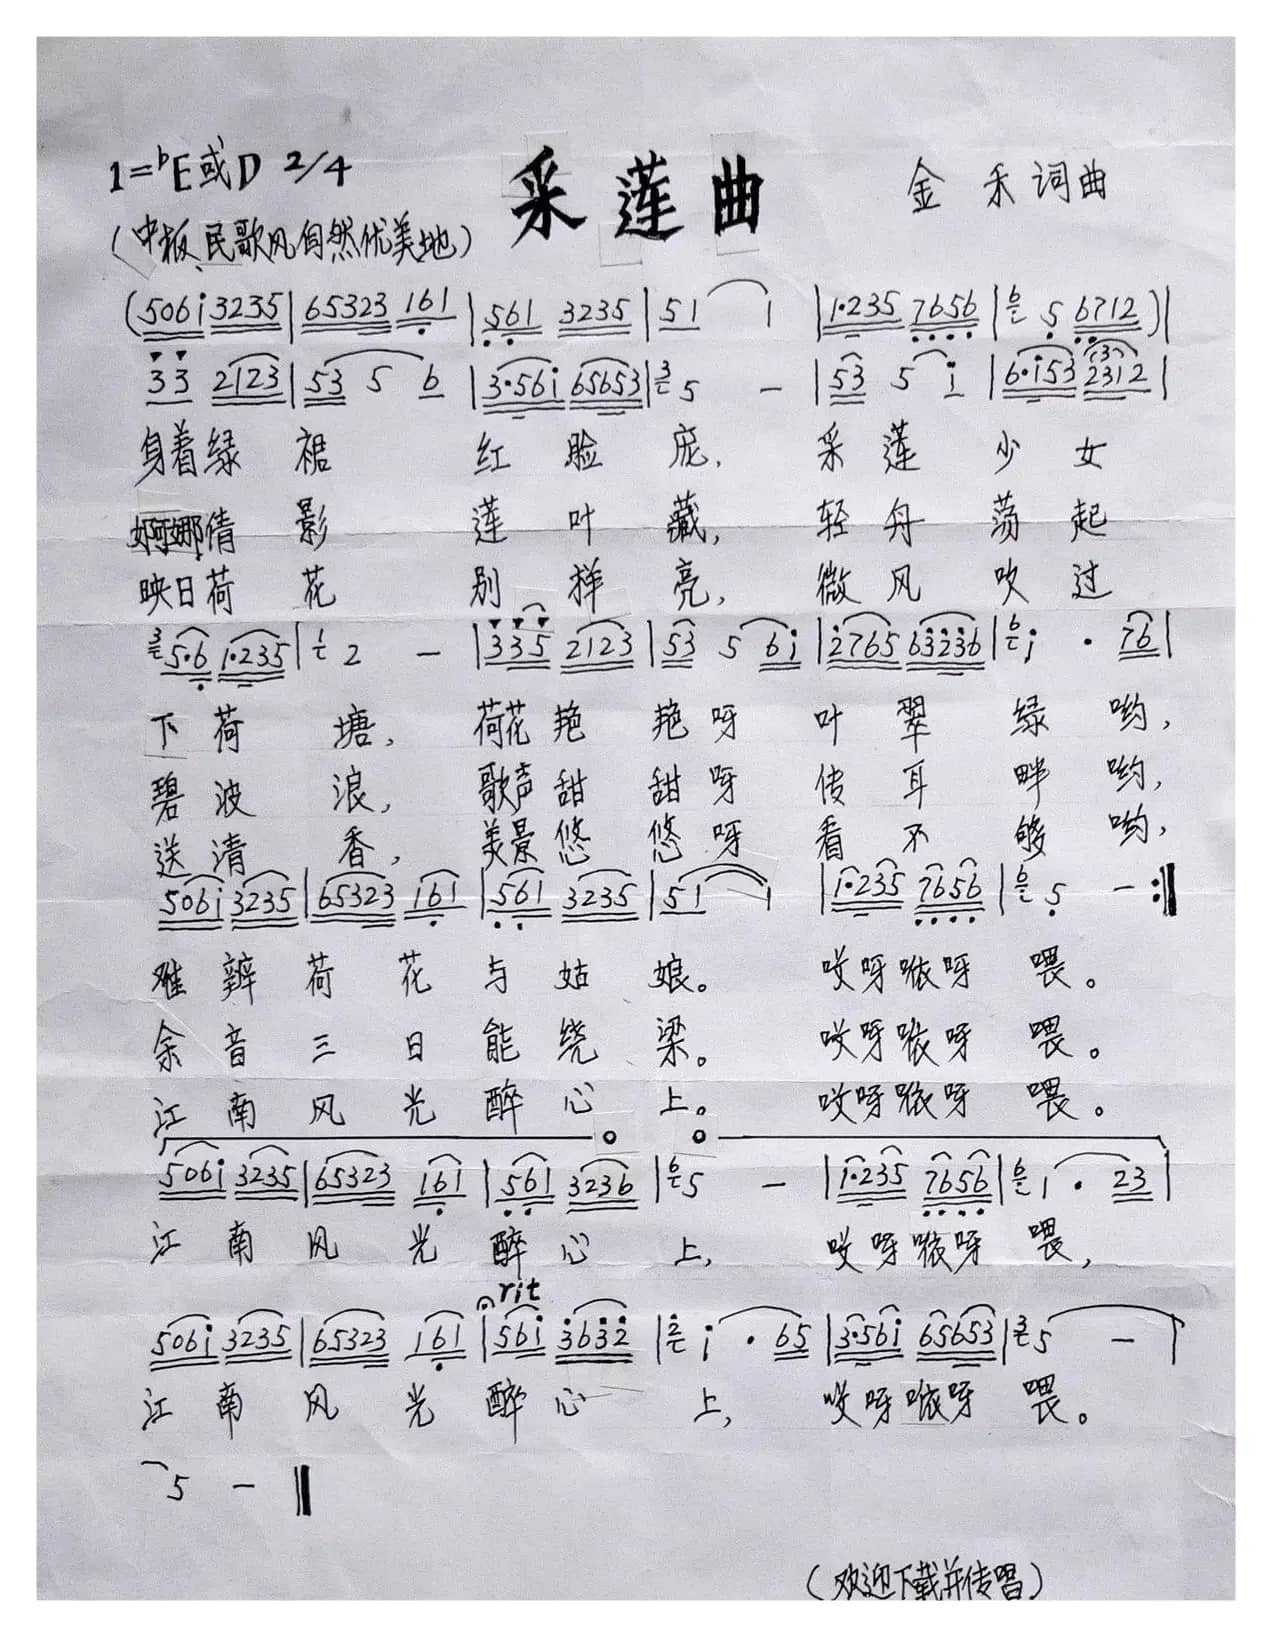 1=bE或D 2/4
采莲曲
金禾词曲
(中板、民歌风自然优美地)
(506i 3235|65323 161|561 3235|51 1|1·235 7656|6 5 6712)|
33 2123|53 5 6|3·56i 65653|3 5 -|53 5 i|6·i53 2312|
身着绿裙 红脸庞, 采莲少女
婀娜倩影 莲叶藏, 轻舟荡起
映日荷花 别样亮, 微风吹过
3 5·6 1·235|1 2 -|335 2123|53 5 6i|i2765 63236|6 i · 76|
下荷塘, 荷花艳艳呀叶翠绿哟,
碧波浪, 歌声甜甜呀传耳畔哟,
送清香, 美景悠悠呀看不够哟,
506i 3235|65323 161|561 3235|51 1|1·235 7656|6 5 -:‖
难辨荷花与姑娘。 哎呀咴呀喂。
余音三日能绕梁。 哎呀咴呀喂。
江南风光醉心上。 哎呀咴呀喂。
506i 3235|65323 161|561 3236|6 5 -|1·235 7656|6 1 · 23|
江南风光醉心上, 哎呀咴呀喂,
rit
506i 3235|65323 161|56i 3632|2 i · 65|3·56i 65653|3 5 -|
江南风光醉心上, 哎呀咴呀喂。
5 -‖
(欢迎下载并传唱)